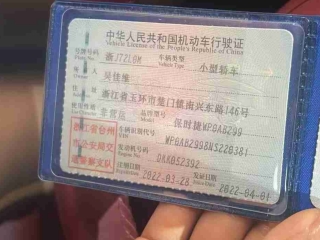 中华人民共和国机动车行驶证
Vehicle License of the People's Republic of China
号牌号码 浙J7Z10M 车辆类型 小型轿车
Vehicle Type
所有人 吴佳维
住址 浙江省玉环市楚门镇南兴东路146号
使用性质 非营运 品牌型号 保时捷WP0ABZ99
浙江省台州市公安局交通警察支队
车辆识别代号 WP0ABZ998NS228381
发动机号码 DAK052392
注册日期 2022-03-28 发证日期 2022-04-01